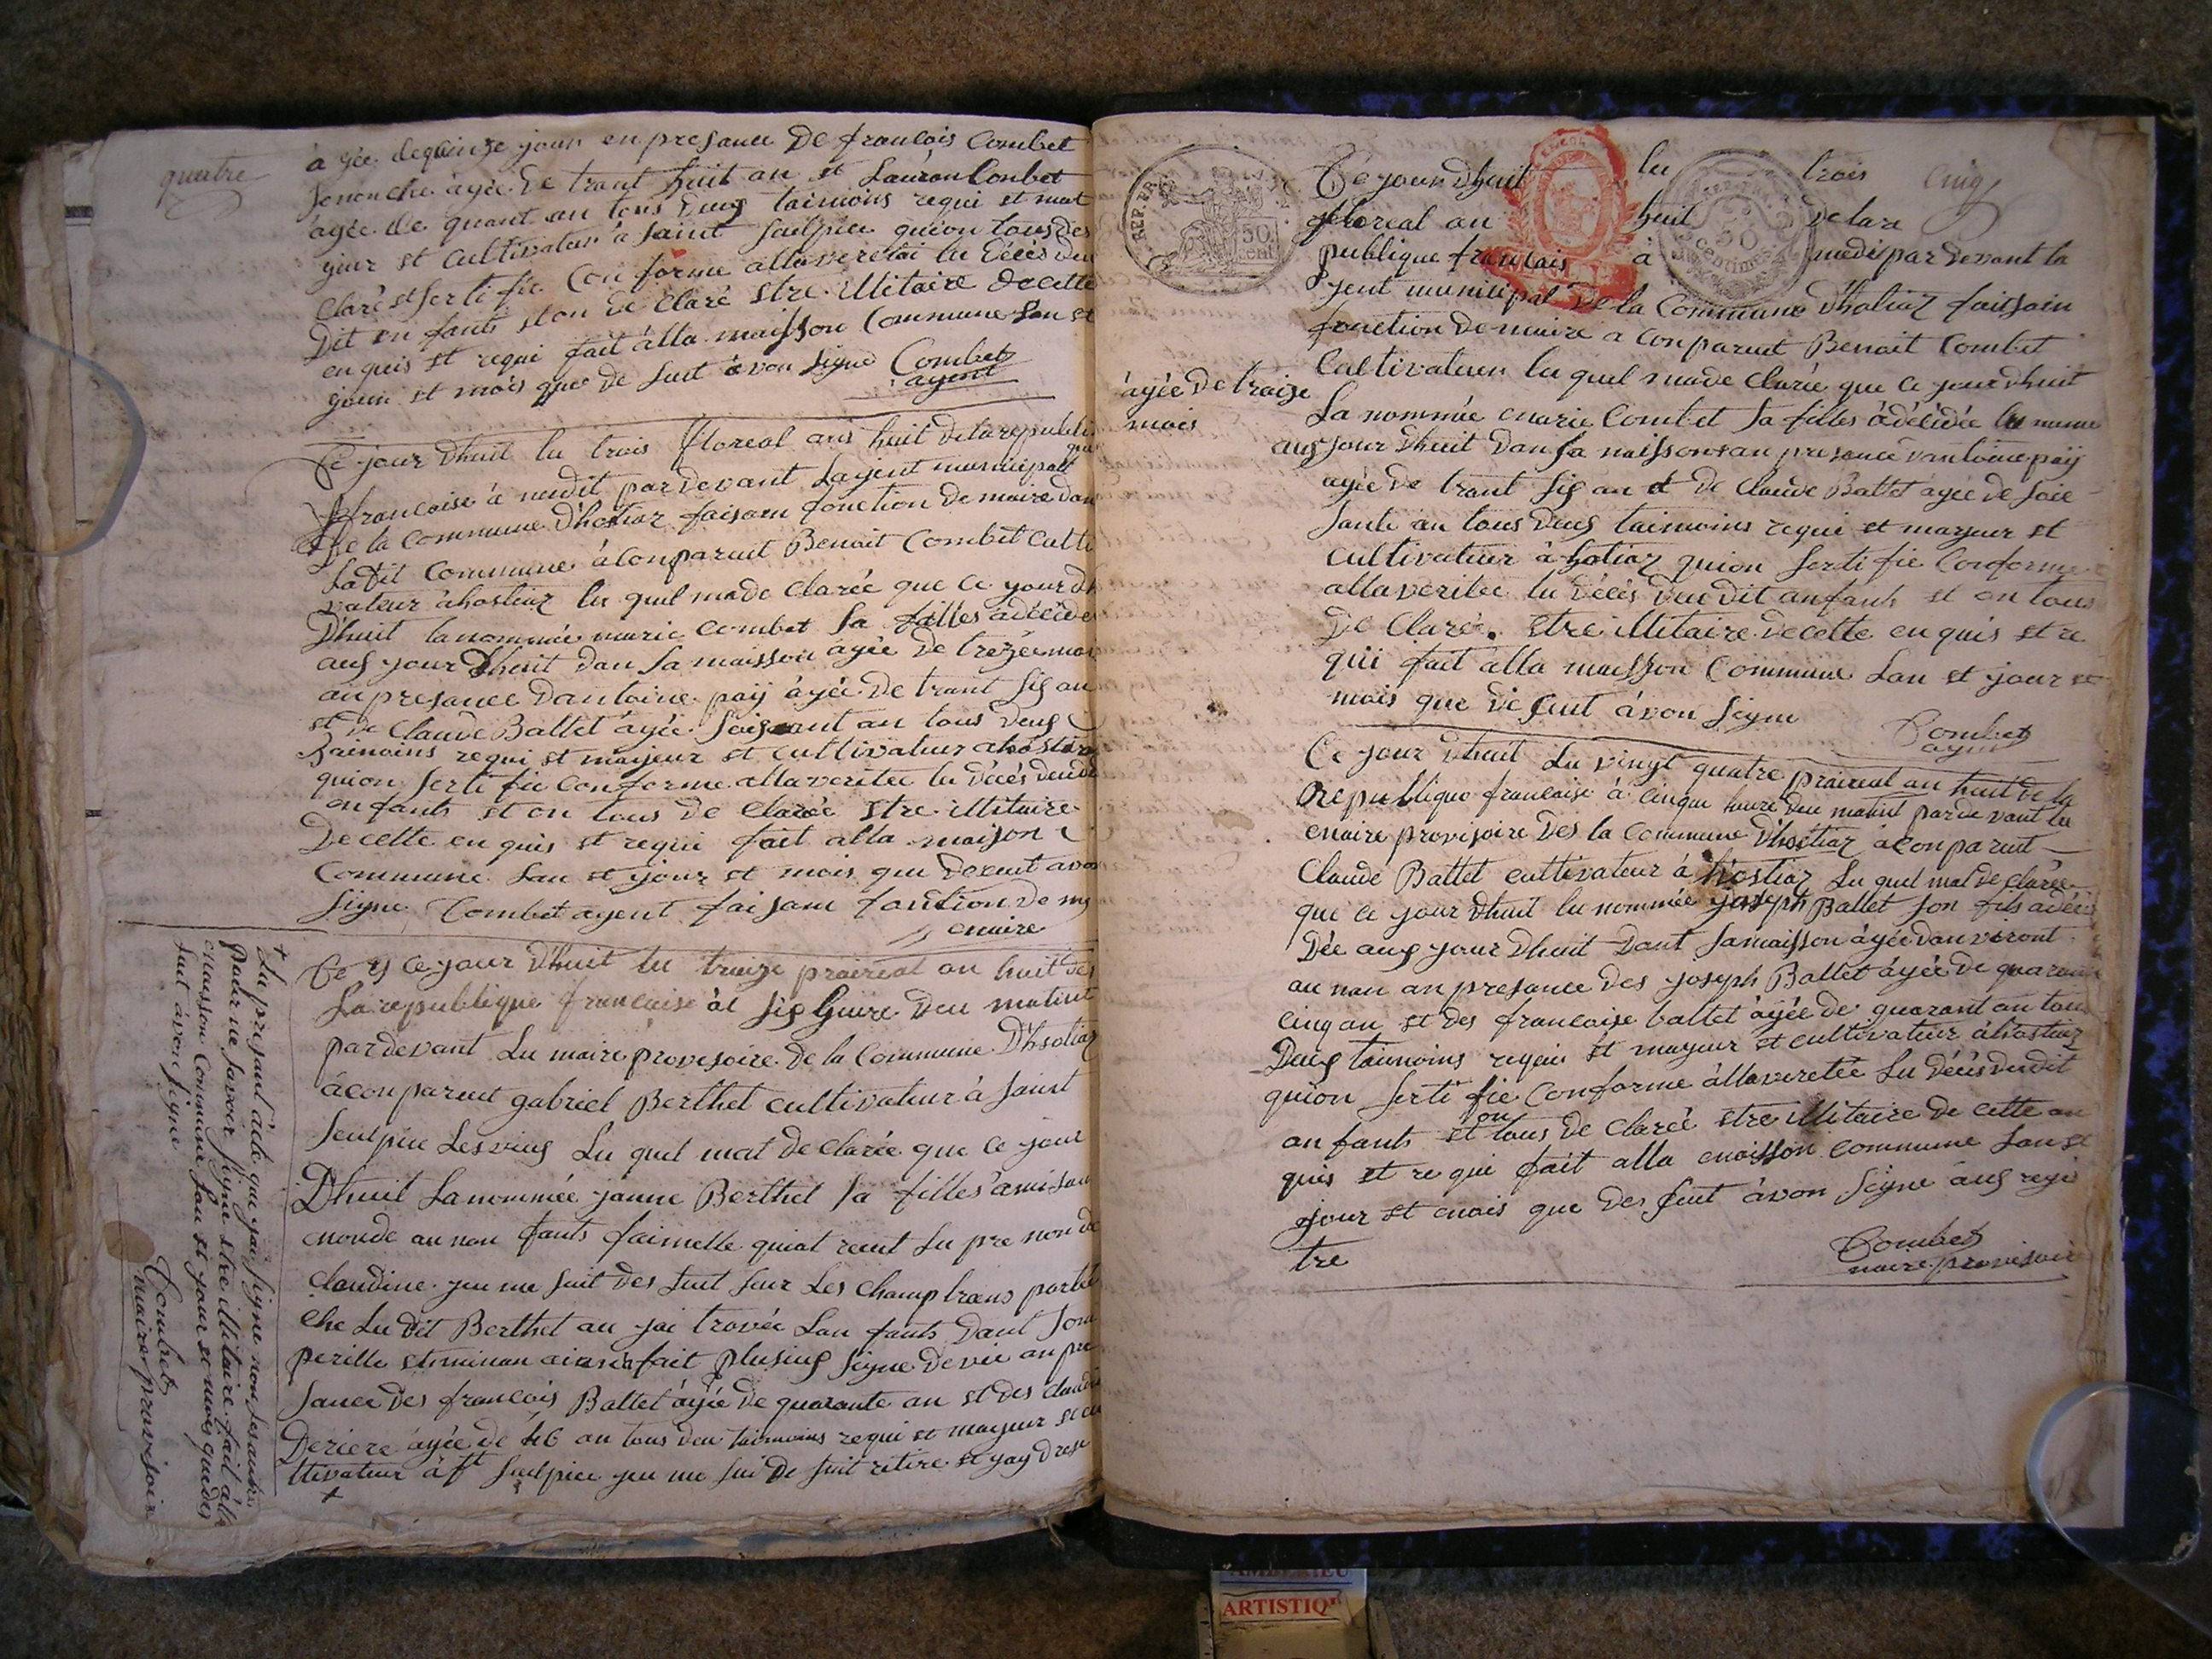 quatre
àgée de quinze jour en presance De francois Combet
Jenonche àgée De trant huit an et Lauran Conbet
àgée de quarant an tous Deus taimoins requi et mat
jeur et Cultivateur à saint Sulpice quion tous des
claré et serti fie Con forme alla veretai lu Décés deu
Dit en fants et on de Claré Etre illitaire De cette
enquis et requi fait àlla maisson Commune Lan et
jour et mois que de sust àvon signe Combet
agent
Ce jour Dhuit lu trois floreal ans huit de la republi
que
francoise à medit par devant Lagent municipall
De la Commune D'hostiaz faisam fonction De maire dan
Ladit Commune àConparuit Benoit Combet Culti
vateur àhostiaz lu quel made Clarée que Ce jour d
Dhuit la nommée marie Combet Sa filles àdécéde
aus jour Dhuit Dan sa maisson àgée De trezée moi
an presance Dantoine pay àgée De trant sis an
et De Claude Ballet àgée soissant an tous deus
taimoins requi et majeur et Cultivateur àhostiaz
quion serti fie Conforme alla veritee lu Décés deudit
enfants et on tous de Clarée Etre illitaire
De cette en quis et requi fait alla maison
Commune Lan et jour et mois que desuit avon
signe Combet agent faisam fonction De m
maire
Ce y Ce jour Dhuit lu traize praireal an huit des
La republique francaise àl sis hure Deu matint
par devant Lu maire provesoire De la Commune D'hsotiaz
àconparuit gabriel Berthet Cultivateur à saint
Sculpice Lesvius Lu quel mat de Clarée que Ce jour
Dhuit La nommée janne Berthet Sa filles àmi sau
monde au nan fants faimelle quiat recut Lu pre non de
Claudine jeu me suit Des suit sur Les Champ trans porté
Che Lu Dit Berthet au jai trovée Lan fants Dant son
perille et minan aians fait plusius signe De vie an pre
sance Des francois Ballet àgée De quarante an et Des Claude
Deriere àgée De 46 an tous deu taimoins requi et majeur et cu
ltivateur à St Sulpice jeu me sui De suit retire et jay Dresé
+
+ Lu presant àcte que jai signe non les autre
pour ne savoir signe Etre illitaire fait àlla
maisson Commune Lan et jour et mois que des
suit àvon signe
Combet
maire provesoire
cinq
REP. FRA.
50
cent
50
centimes
Ce jour Dhuit lu trois
floreal an huit De la re
publique francais à medi par devant la
jent municipal De la Commune D'hotiaz faissain
fonction De maire a Conparuit Benoit Combet
Cultivateur lu quel made Clarée que Ce jour dhuit
àgée De traize
mois
La nommée marie Combet Sa filles àdécédée lu meme
aus jour Dhuit Dan sa maisson an presance Dantoine pay
agée De trant sis an et De Claude Ballet àgée de soic
sante an tous Deus taimoins requi et majeur et
Cultivateur à hotiaz quion serti fie Conforme
alla veritee lu Décés Deu dit anfants et on tous
De Claré. Etre illitaire De cette en quis et re
qui fait àlla maisson Commune Lan et jour et
mois que de suit àvon signe
Combet
agent
Ce jour Dhuit Lu vingt quatre praireal an huit de la
Republique francaise à cinque heure Deu matint par de vant Lu
maire provisoire Des la Commune D'hostiaz àconparuit
Claude Ballet cultivateur à hostiaz Lu quel mat de clarée
que Ce jour Dhuit lu nommée joseph Ballet son fils àdécé
Dée aus jour Dhuit Dant sa maisson àgée Danveront
au nan an presance Des joseph Ballet àgée De quarante
Cinq an et Des francoise ballet àgée De quarant an tous
Deus taimoins requi et majeur et cultivateur àhostiaz
quion serti fie Conforme àlla veretée Lu Décés deudit
an fants et on tous De Clareé Etre illitaire De cette an
quis et re qui fait alla maisson Commune Lan et
jour et mois que Des suit àvon signe aus regi
tre
Combet
maire provisoire
AMBERIEU
ARTISTIQ